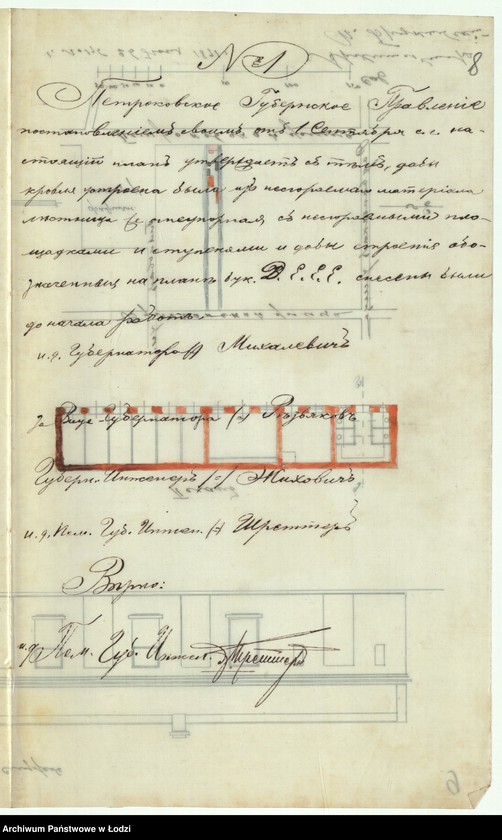 № 1
8
Петроковское Губернское Правленіе
постановленіемъ своимъ отъ 1 Сентября с.г. на-
стоящій планъ утверждаетъ съ тѣмъ, дабы
кровля устроена была изъ несгораемаго матеріала
лѣстница съ несгораемыми пло-
щадками и ступенями и дабы строенія обо-
значенныя на планѣ бук. D. E. E. E. снесены были
до начала работъ
и.д. Губернатора (-) Михалевичъ
за Вице-Губернатора (-) Рѣзьяковъ
Губерн. Инженеръ (-) Жиховичъ
и.д. Пом. Губ. Инжен. (-) Шреттеръ
Вѣрно:
и.д. Пом. Губ. Инжен. Шреттеръ
9
Archiwum Państwowe w Łodzi